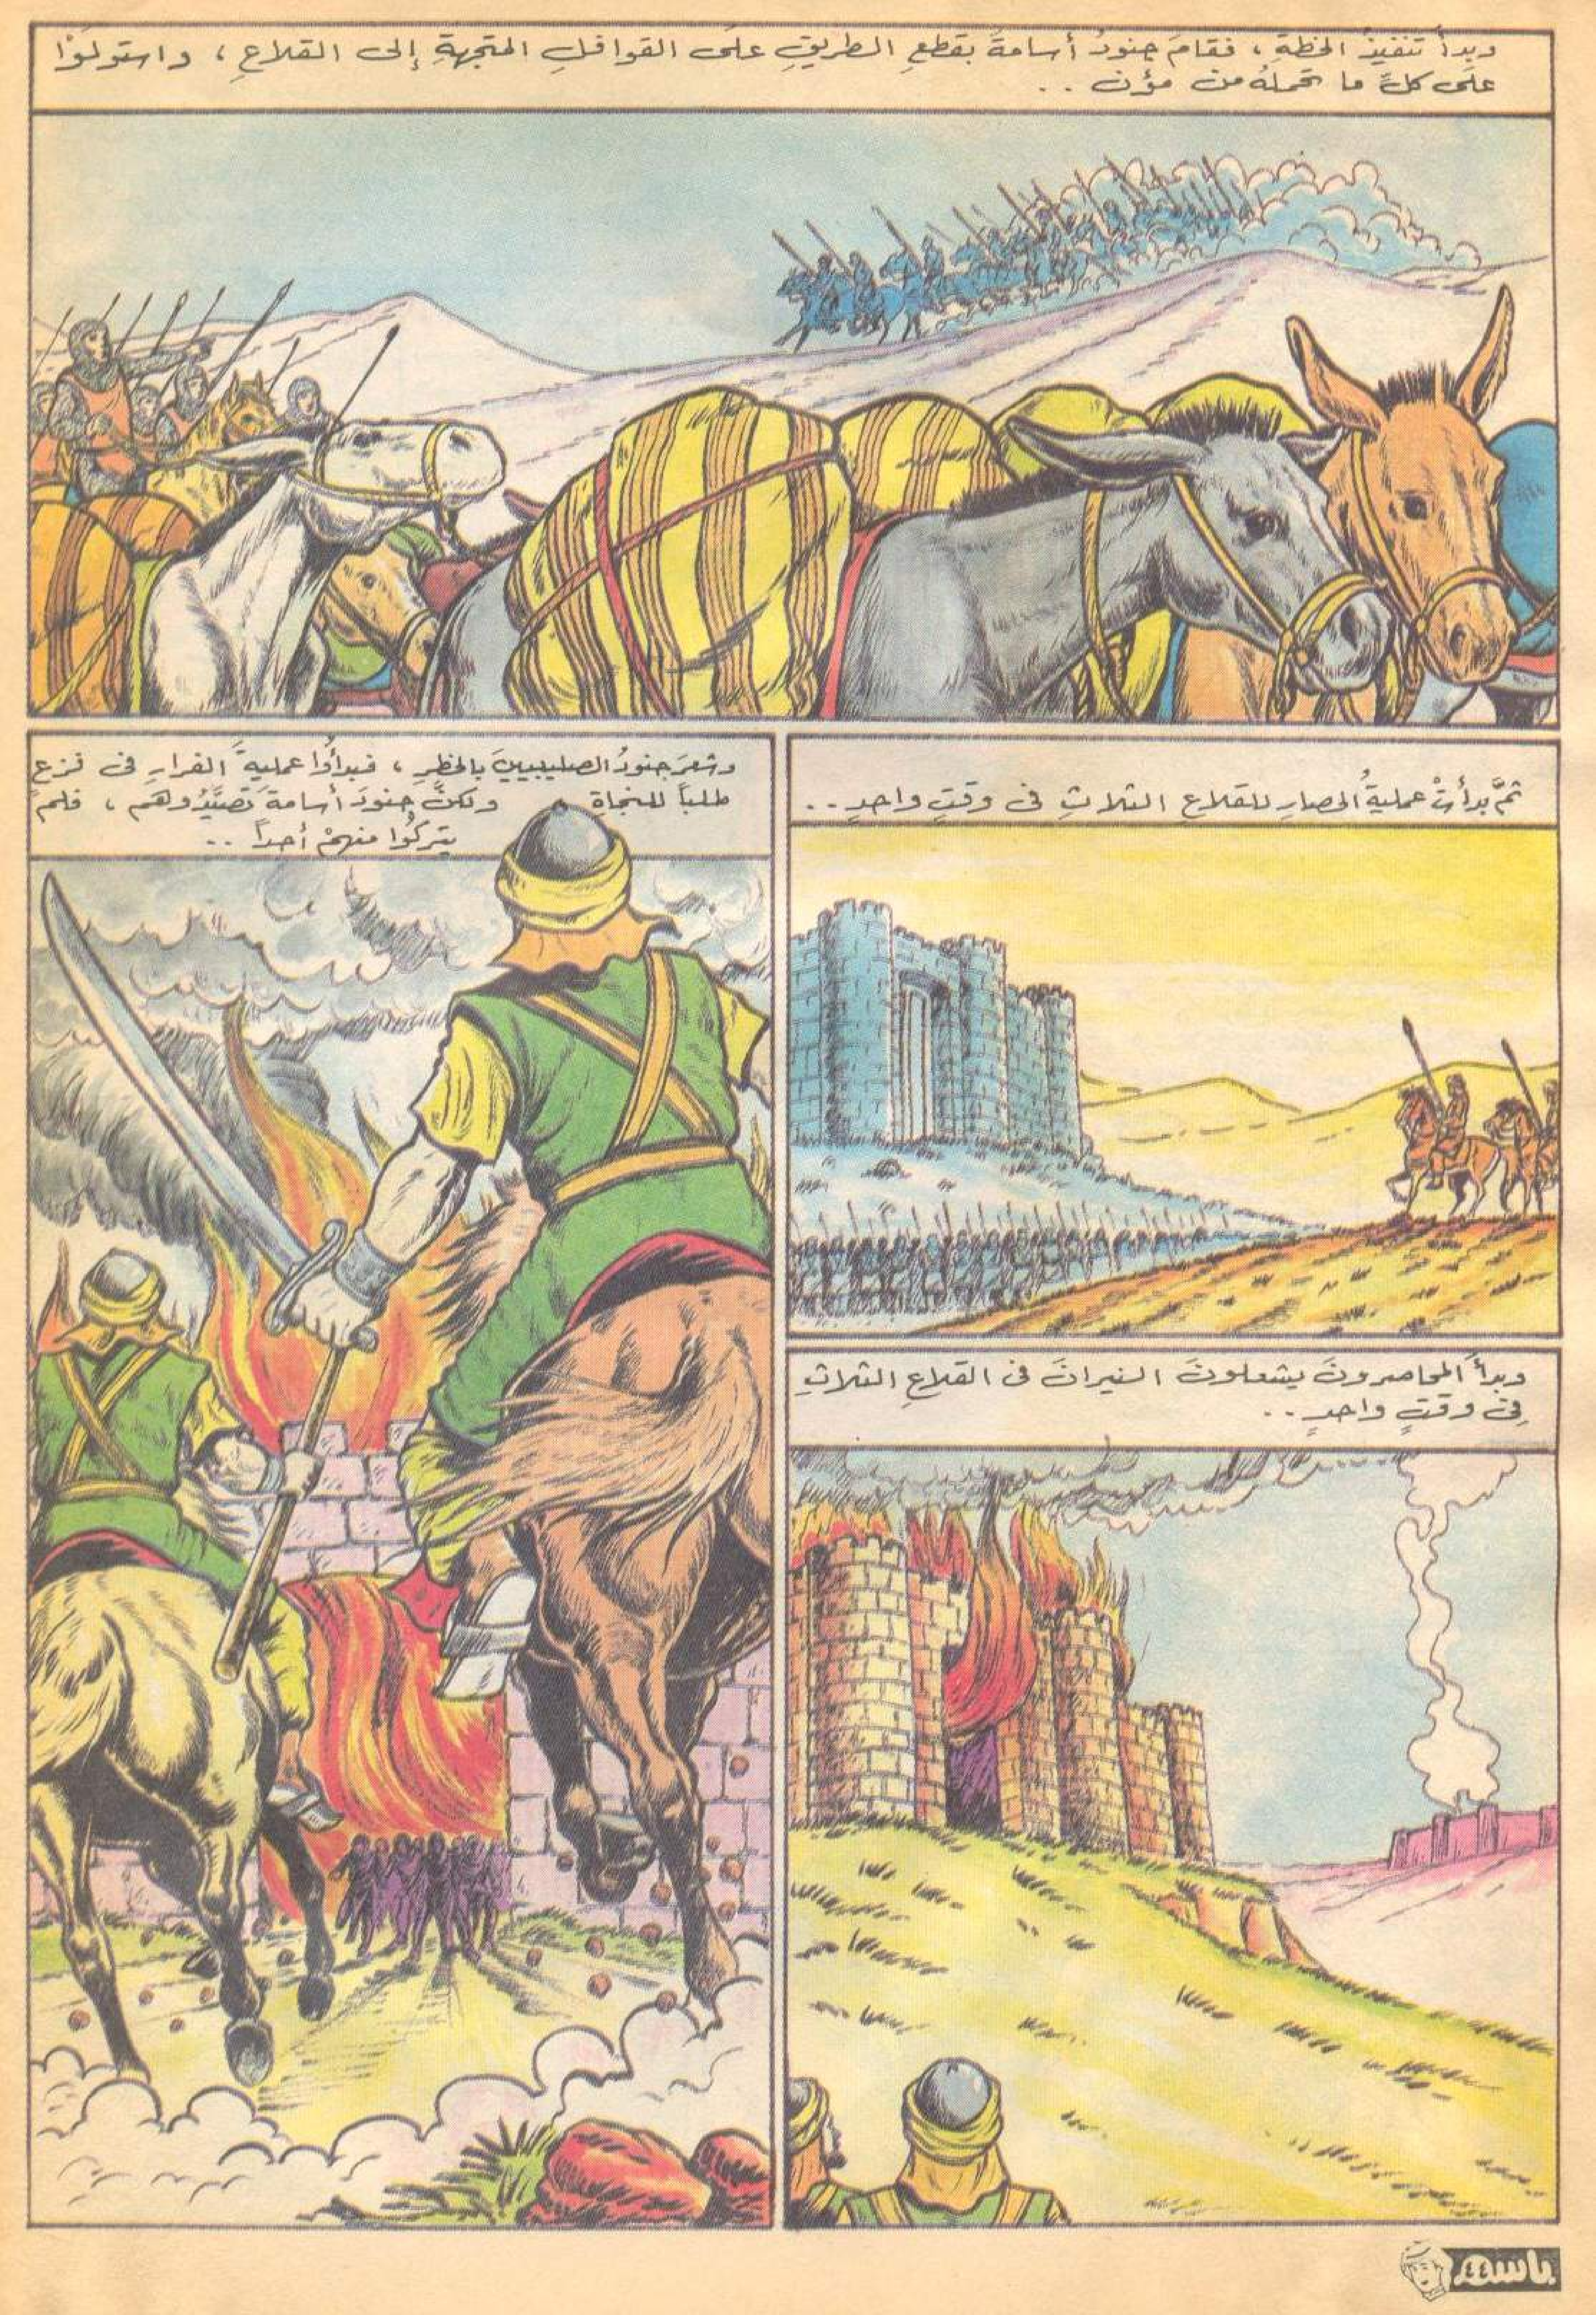 وبدأ تنفيذ الخطةِ ، فقامَ جنودُ أسامةَ بقطعِ الطريقِ علَى القوافلِ المتجهةِ إلى القلاعِ ، واستولَوْا
علَى كلِّ ما تحملهُ من مؤن ..
ثمَّ بدأتْ عمليةُ الحصارِ للقلاعِ الثلاثِ فى وقتٍ واحدٍ ..
وبدأَ المحاصرونَ يشعلونَ النيرانَ فى القلاعِ الثلاثِ
فِى وقتٍ واحدٍ ..
وشعرَ جنودُ الصليبيينَ بالخطرِ ، فبدأوُا عمليةَ الفرارِ فى فزعٍ
طلباً للنجاةِ ولكنَّ جنودَ أسامةَ تَصَيَّدُوهَم ، فلم
يتركُوا منهمْ أحداً ..
باسم